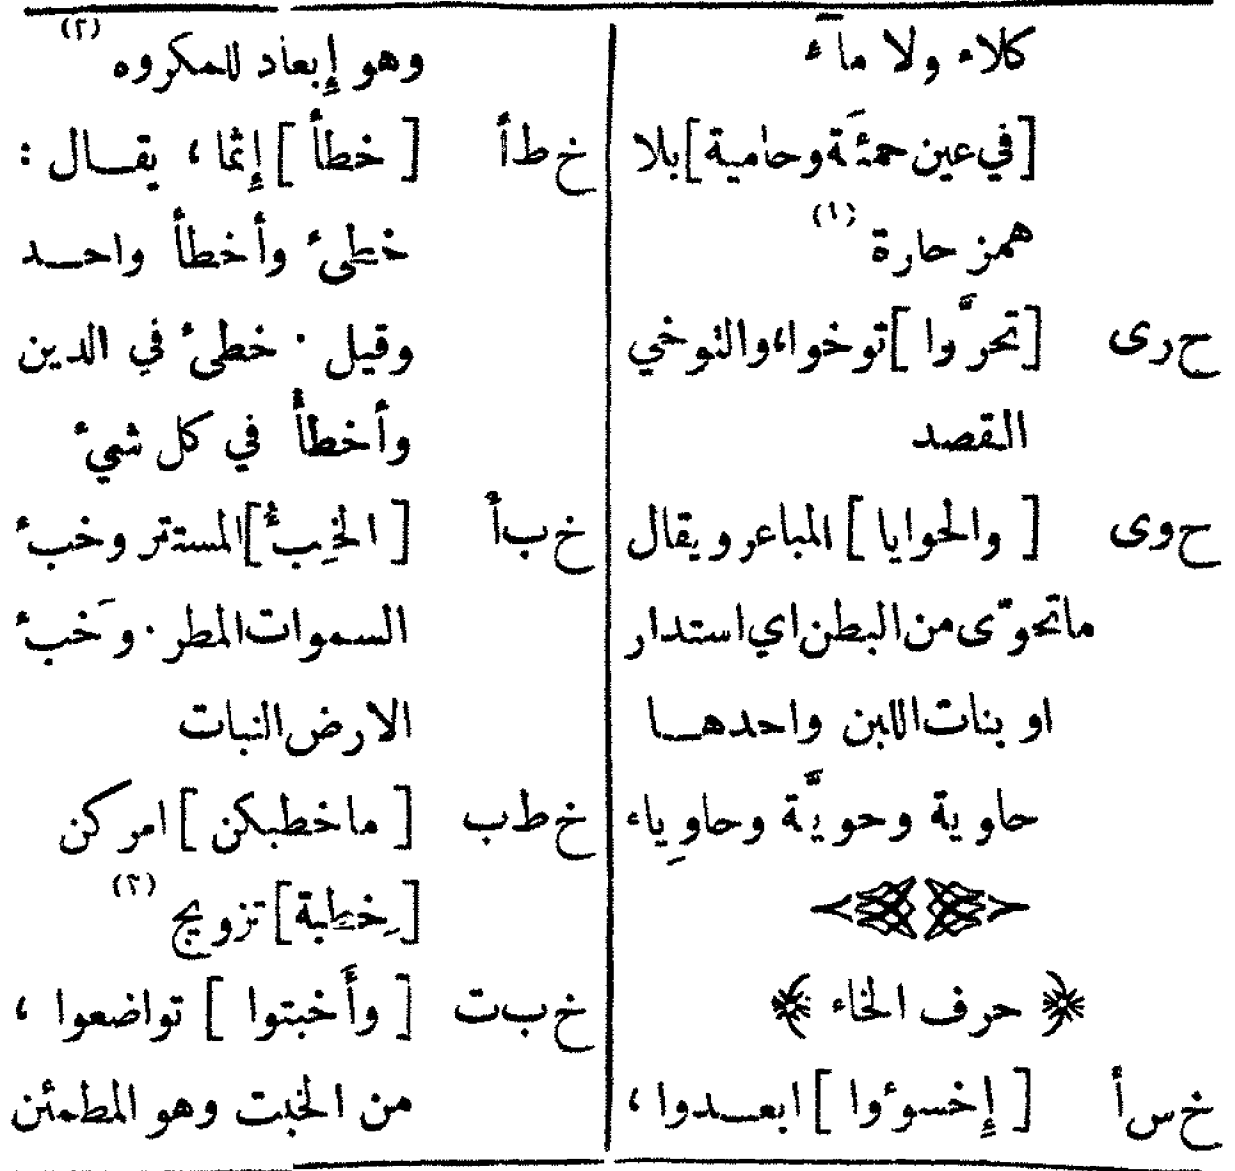 كلاء ولا مآء
[في عين حمئَة وحامية] بلا
همز حارة (١)
حرى [تحرَّوا] توخوا، والتوخي
القصد
حوى [والحوايا] المباعر ويقال
ماتحوّى من البطن اي استدار
او بنات اللبن واحدهـا
حاوية وحويَّة وحاوِياء
حرف الخاء
خسأ [إخسوءُوا] ابعـدوا ،
وهو إبعاد للمكروه (٢)
خطأ [خطأ] إثما ، يقـال :
خطىء وأخطأ واحـد
وقيل . خطىء في الدين
وأخطأ في كل شيء
خبأ [الخِبءُ] المستتر وخبء
السموات المطر . وخَبء
الارض النبات
خطب [ماخطبكن] امركن
[خِطبة] تزويج (٢)
خبت [وأَخبتوا] تواضعوا ،
من الخبت وهو المطمئن